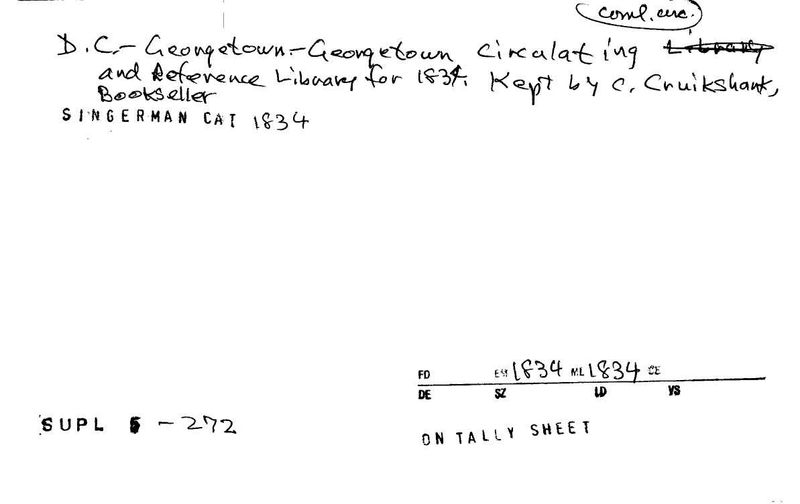 coml. circ.
D.C.- Georgetown.- Georgetown Circulating Library
and Reference Library for 1834. Kept by C. Cruikshank,
Bookseller
SINGERMAN CAT 1834
FD EM 1834 ML 1834 CE
DE SZ LD YS
SUPL 5 - 272
ON TALLY SHEET